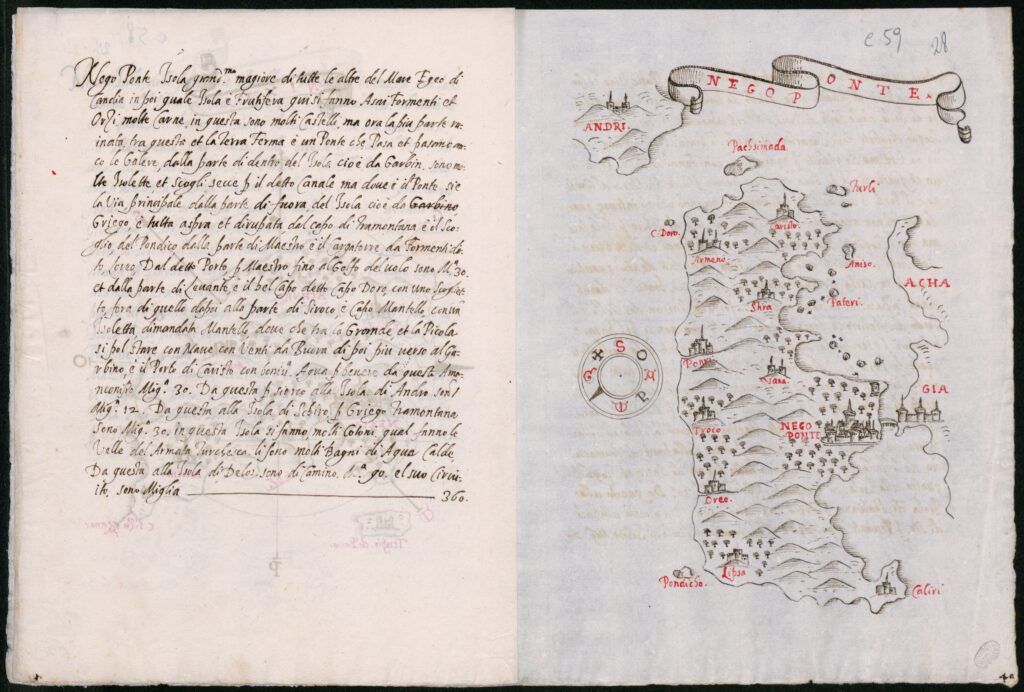 Nego Ponte Isola grand.ma magiore di tutte le altre del Mare Egeo di
Candia in poi quale Isola è Frutifera qui si fanno Asai Formenti et
Orzi molte Carne, in questa sono molti Castelli, ma ora la piu parte ru-
inata, tra questo et la Terra Ferma è un Ponte che Pasa et pasono an-
co le Galere, dalla parte di dentro del Isola cioè da Garbin, sono mo-
lte Isolette et Scogli secce p il detto Canale ma dove è il Ponte si è
la Via principale dalla parte di fuora del Isola cioè da Garbino
Griego, è tutta aspra et dirupata dal capo di Tramontana è il Sco-
glio del Pondico dalla parte di Maestro è il
Dal detto Porto, p Maestro fino al Golfo del uolo sono M.a 30.
et dalla parte di Leuante, è il bel Capo detto Capo Doro, con uno Scogliet-
to, fora di quello dopoi alla parte di Siroco è Capo Mantello, con una
Isoletta dimandata Mantello, doue che tra la Grande et la Picola
si pol stare con Naue con Venti da Buora di poi piu verso al Gar-
bino, è il Porto di Caristo con Aqua p beuere da questa
Mig.a 30. Da questa p Siroco alla Isola di Andro sono
Mig.a 12. Da questa alla Isola di Schiro p Griego Tramontana
sono Mig.a 30. in questa Isola si fanno molti Cotoni, qual fanno le
Velle del Armata Turchesca. li sono molti Bagni di Aqua Calde
Da questa alla Isola di Delos sono di Camino M.a 90. e l suo Circu-
ito, sono Miglia 360.
P
c 59
28
NEGOPONTE.
ANDRI.
Pachsimada.
Furli
Caristo.
C. Doro.
Armeno
Aniso.
ACHA
Paleri.
Shra
S O P
GIA
Troco
NEGO
PONTE
Oreo.
Lipsa
Pondicho.
Caliri